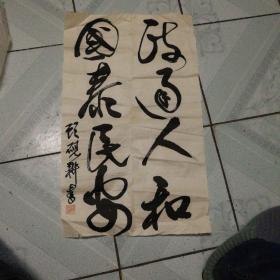 政通人和
國泰民安